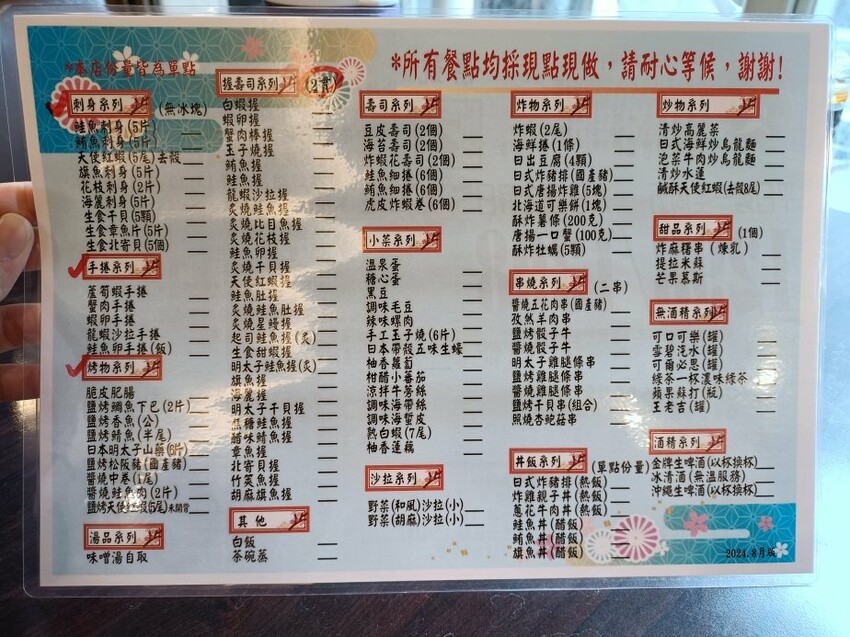 *本店份量皆為單點
*所有餐點均採現點現做，請耐心等候，謝謝!
刺身系列 (無冰塊)
鮭魚刺身(5片)
鮪魚刺身(5片)
天使紅蝦(5尾)去殼
旗魚刺身(5片)
花枝刺身(2片)
海麗刺身(5片)
生食干貝(5顆)
生食章魚片(5片)
生食北寄貝(5個)
手捲系列
蘆筍蝦手捲
蟹肉手捲
蝦卵手捲
龍蝦沙拉手捲
鮭魚卵手捲(飯)
烤物系列
脆皮肥腸
鹽烤鯛魚下巴(2片)
鹽烤香魚(公)
鹽烤鯖魚(半尾)
日本明太子山藥(6片)
鹽烤松阪豬(國產豬)
醬燒中卷(1尾)
醬燒鮭魚肉(2片)
鹽烤天使紅蝦(5尾)未開背
湯品系列
味噌湯自取
握壽司系列 (2貫)
白蝦握
蝦卵握
蟹肉棒握
玉子燒握
鮪魚握
鮭魚握
龍蝦沙拉握
炙燒鮭魚握
炙燒比目魚握
炙燒花枝握
鮭魚卵握
炙燒干貝握
天使紅蝦握
鮭魚肚握
炙燒鮭魚肚握
炙燒星鰻握
起司鮭魚握(炙)
生食甜蝦握
明太子鮭魚握(炙)
旗魚握
海麗握
明太子干貝握
焦糖鮭魚握
醋味鯖魚握
章魚握
北寄貝握
竹筴魚握
胡麻旗魚握
其他
白飯
茶碗蒸
壽司系列
豆皮壽司(2個)
海苔壽司(2個)
炸蝦花壽司(2個)
鮭魚細捲(6個)
鮪魚細捲(6個)
虎皮炸蝦卷(6個)
小菜系列
溫泉蛋
糖心蛋
黑豆
調味毛豆
辣味螺肉
玉子燒(6片)
日本帶殼五味生蠔
柚香蘿蔔
柑醋小番茄
涼拌牛蒡絲
調味海帶絲
調味海蜇皮
熟白蝦(7尾)
柚香蓮藕
沙拉系列
野菜(和風)沙拉(小)
野菜(胡麻)沙拉(小)
炸物系列
炸蝦(2尾)
海鮮捲(1條)
日出豆腐(4顆)
日式炸豬排(國產豬)
日式唐揚炸雞(5塊)
北海道可樂餅(1塊)
酥炸薯條(200克)
唐揚一口蟹(100克)
酥炸牡蠣(5顆)
串燒系列 (二串)
醬燒五花肉串(國產豬)
孜然羊肉串
鹽烤骰子牛
醬燒骰子牛
明太子雞腿條串
鹽烤雞腿條串
醬燒雞腿條串
鹽烤干貝串(組合)
照燒杏鮑菇串
丼飯系列 (單點份量)
日式炸豬排(熱飯)
炸雞親子丼(熱飯)
蔥花牛肉丼(熱飯)
鮭魚丼(醋飯)
鮪魚丼(醋飯)
旗魚丼(醋飯)
炒物系列
清炒高麗菜
日式海鮮炒烏龍麵
泡菜牛肉炒烏龍麵
清炒水蓮
鹹酥天使紅蝦(去殼8尾)
甜品系列 (1個)
炸麻糬串(煉乳)
提拉米蘇
芒果慕斯
無酒精系列
可口可樂(罐)
雪碧汽水(罐)
可爾必思(罐)
綠茶一杯濃味綠茶
蘋果蘇打(瓶)
王老吉(罐)
酒精系列
金牌生啤酒(以杯換杯)
冰清酒(無溫服務)
沖繩生啤酒(以杯換杯)
2024.8月版